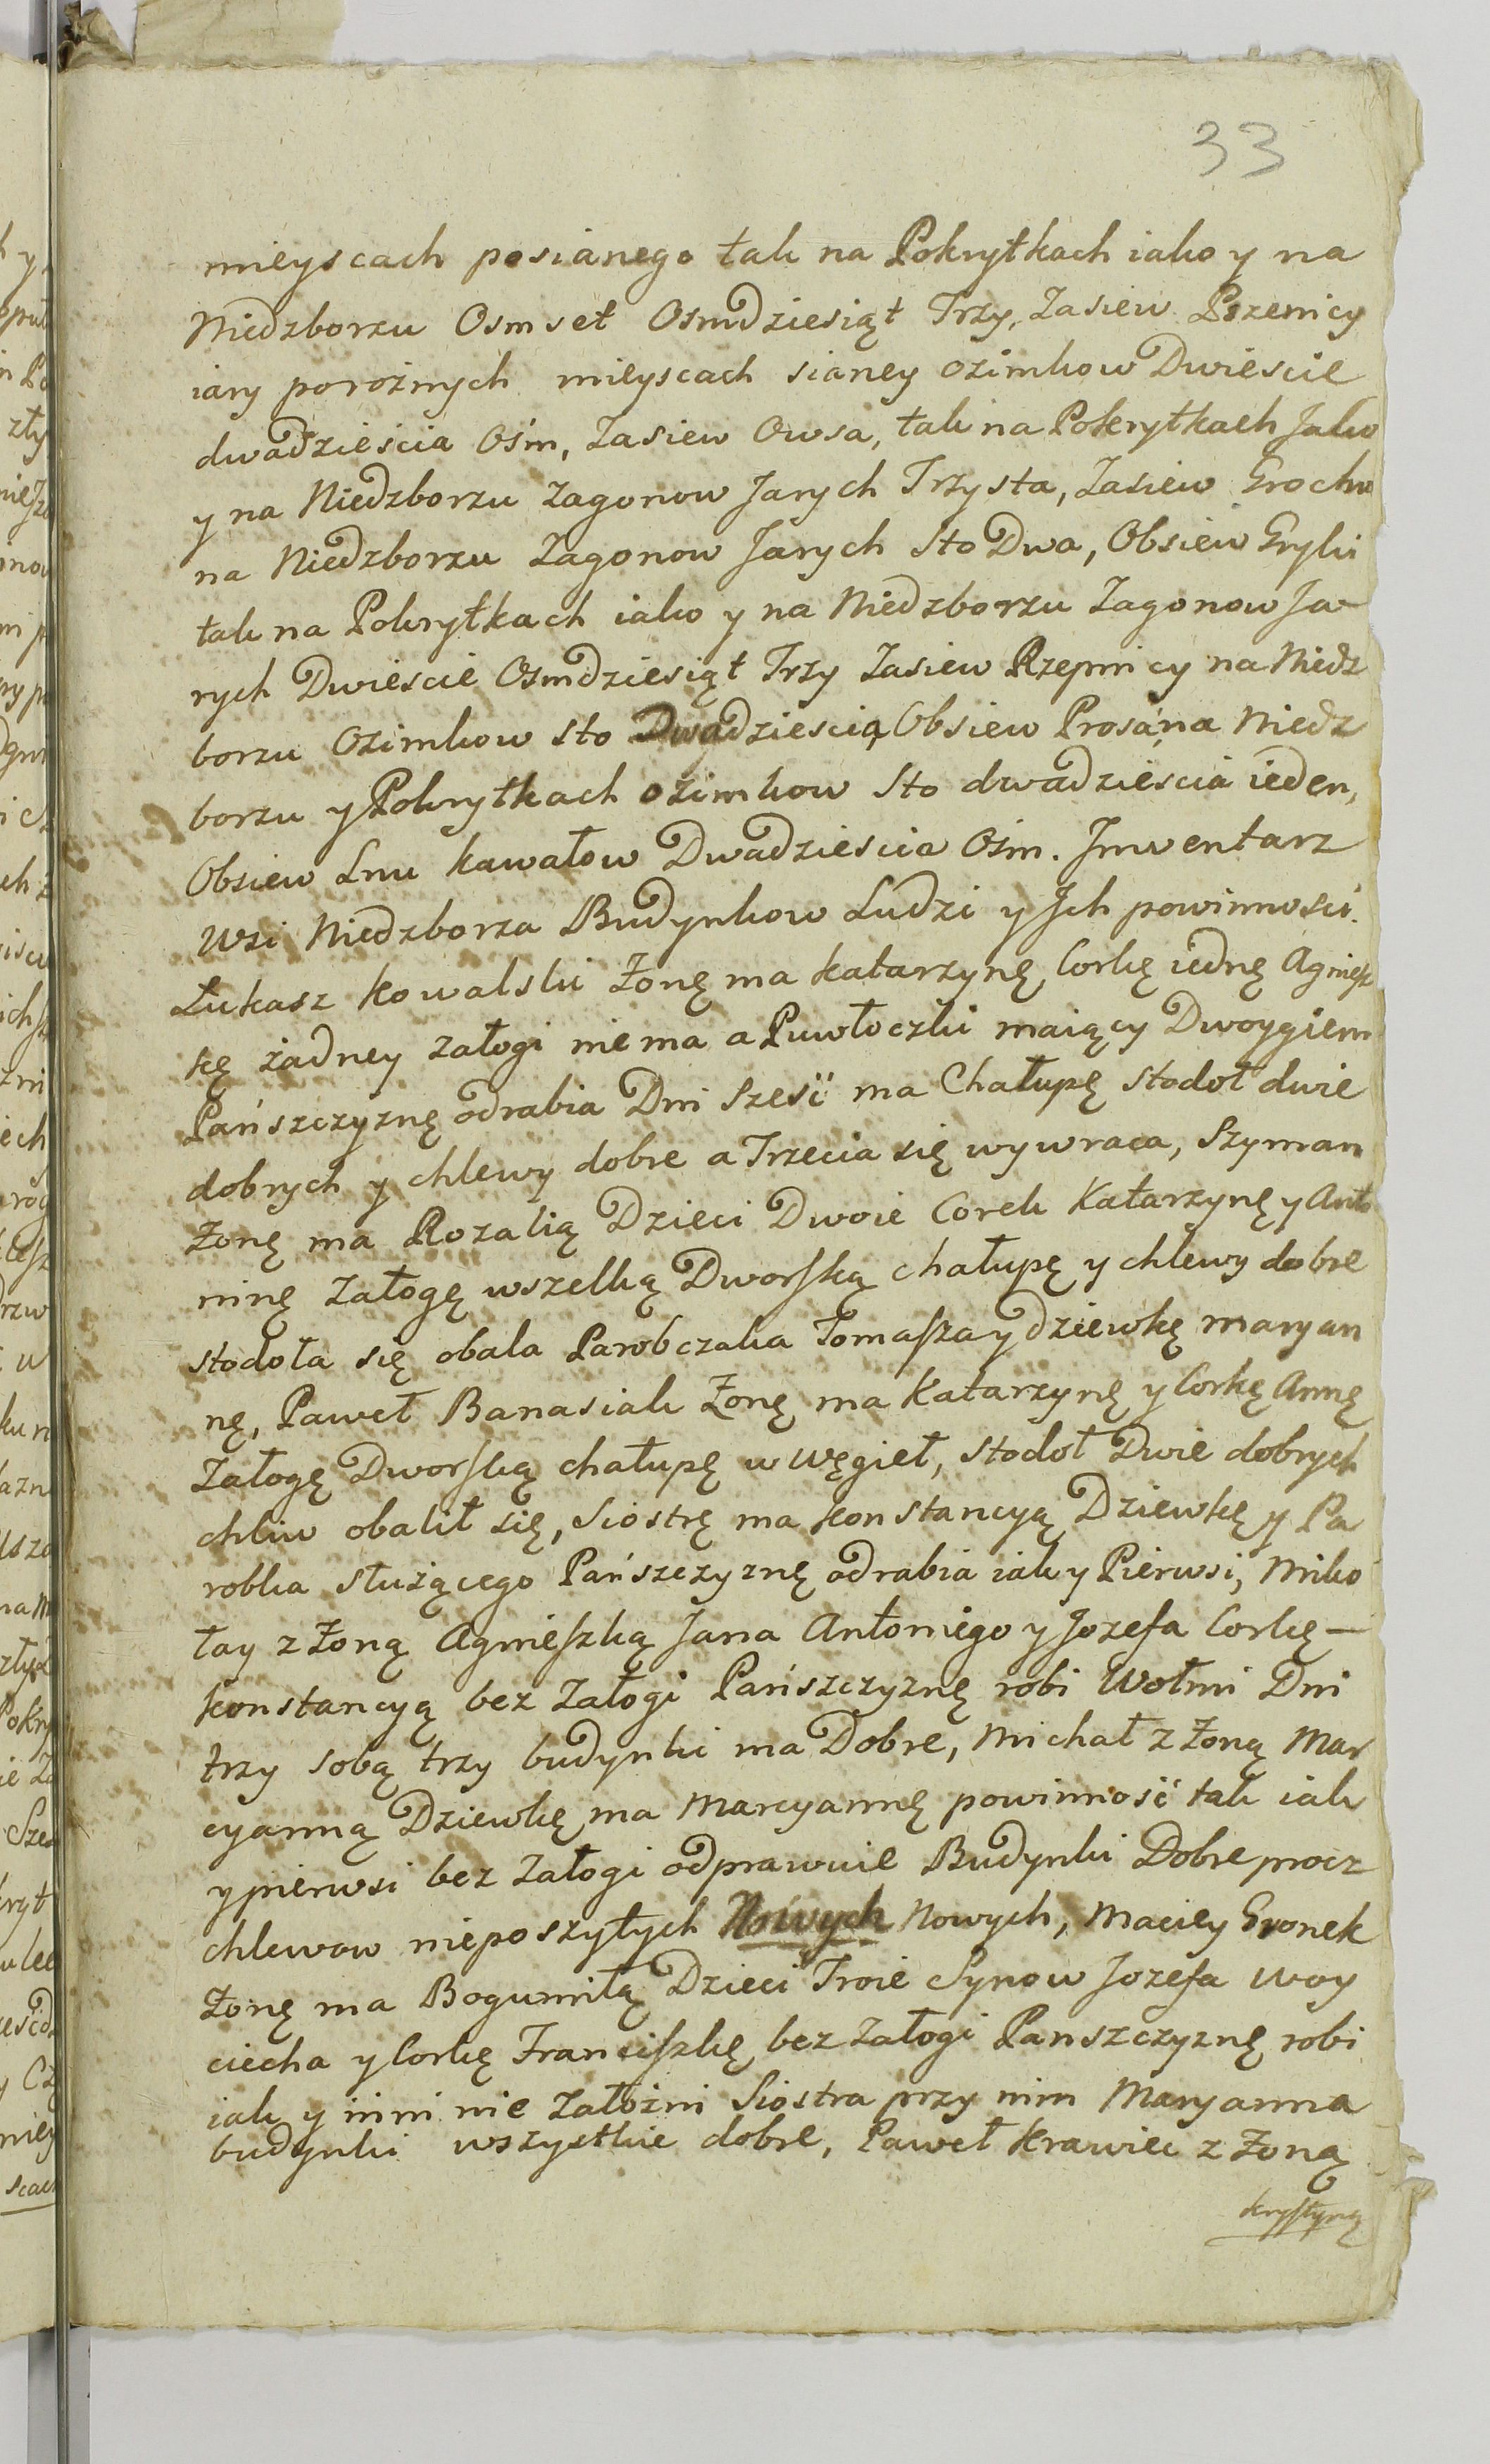 33
mieyscach posianego tak na Pokrytkach iako y na
Niedzborzu Osmset Osmdziesiąt Trzy, Zasiew Pszenicy
iary porożnych mieyscach sianey ozimkow Dwiescie
dwadzieścia Ośm, Zasiew Owsa, tak na Pokrytkach Jako
y na Niedzborzu zagonow Jarych Trzysta, Zasiew Grochu
na Niedzborzu Zagonow Jarych Sto Dwa, Obsiew Gryki
tak na Pokrytkach iako y na Niedzborzu Zagonow Ja-
rych Dwiescie Osmdziesiąt Trzy Zasiew Rzepnicy na Niedz
borzu Ozimkow sto Dwadziescia, Obsiew Prosa, na Niedz
borzu y Pokrytkach ozimkow Sto dwadzieścia ieden,
Obsiew Lnu kawałow Dwadziescia Ośm. Jnwentarz
Wsi Niedzborza Budynkow Ludzi y Jch powinności.
Łukasz Kowalski Żonę ma Katarzynę, Corkę iednę Agniesz
kę żadney załogi nie ma a Puwłoczki maiący Dwoygiem
Pańszczyznę odrabia Dni Sześć ma Chałupę stodoł dwie
dobrych y chlewy dobre a Trzecia się wywraca, Szyman
Żonę ma Rozalią Dzieci Dwoie Corek Katarzynę y Anto
ninę Załogę wszelką Dworską chałupę y chlewy dobre
stodoła się obala Parobczaka Tomasza y dziewkę maryan
nę, Paweł Banasiak Żonę ma Katarzynę y Corkę Annę
Załogę Dworską chałupę w Węgieł, stodoł Dwie dobrych
chliw obalił się, Siostrę ma Konstancyą Dziewkę y Pa
robka służącego Pańszczyznę odrabia iak y Pierwsi, Miko
łay z Żoną Agnieszką Jana Antoniego y Jozefa Corkę —
Konstancyą bez Załogi Pańszczyznę robi Wołmi Dni
trzy sobą trzy budynki ma Dobre, Michał z Żoną Mar
cyanną Dziewkę ma Marcyannę powinność tak iak
y pierwsi bez Załogi odprawuie Budynki Dobre procz
chlewow nieposzytych Nowych Nowych, Maciey Gronek
Żonę ma Bogumiłą Dzieci Troie Synow Jozefa Woy
ciecha y Corkę Franciszkę bez Załogi Panszczyznę robi
iak y inni nie Załoźni Siostra przy nim Maryanna
budynki wszystkie dobre, Paweł Krawiec z Żoną
krystyną